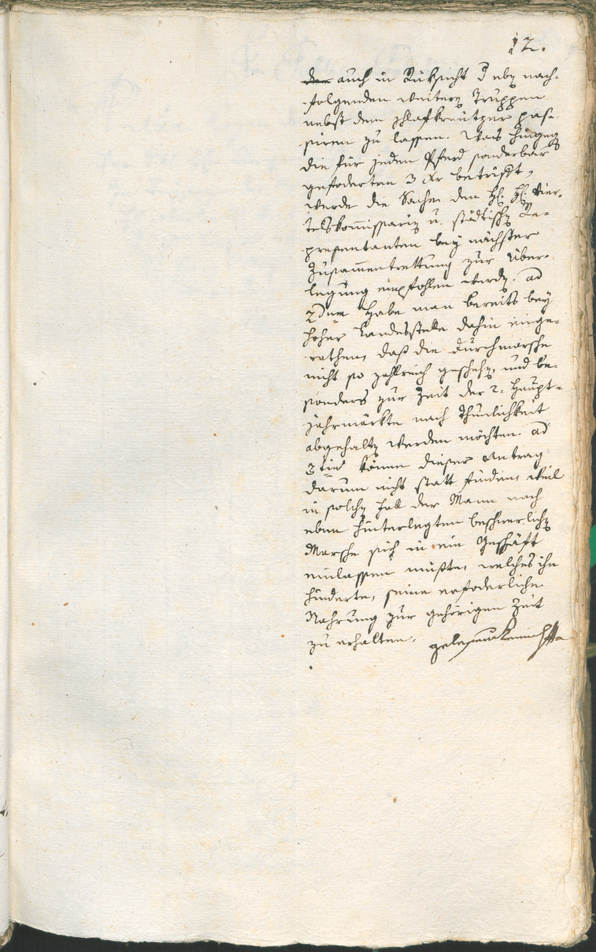 12.
auch in Rüksicht d nach¬
folgenden weitern Truppen
nebst dem schlafkreutzer pas¬
siren zu lassen. Was hingegen
die für jeden Pferd sonderbar
geforderten 3 Kr betrifft,
werde die Sache den H. H. Vier¬
telskommissarien u. städtischen Re¬
praesentanten bey nächster
Zusammentrettung zur Über¬
legung empfohlen werden. ad
2dum habe man bereits bey
hoher Landesstelle dahin einge¬
rathen, daß die Durchmarsche
nicht so zahlreich geschehen, und be¬
sonders zur Zeit der 2. Haupt¬
jahrmärkte nach Thunlichkeit
abgehalten werden möchten. ad
3tio könne dieser Antrag
darum nicht statt finden, weil
in solchem fall der Mann nach
eben hinterlegten beschwerlichen
Marsche sich in ein Geschäft
einlassen müßte, welches ihn
hinderte, seine erforderliche
Nahrung zur gehörigen Zeit
zu erhalten.